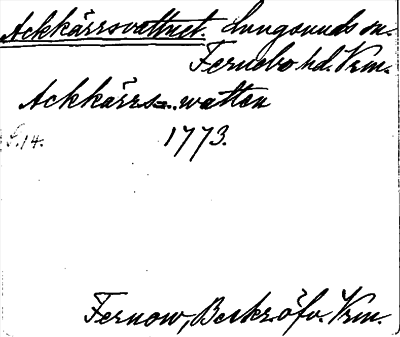 Ackkärrsvattnet. Lungsunds sn.
Fernebo hd. Vrm.
Ackkärrs-watten
S. 14. 1773.
Fernow, Beskr. öfv. Vrm.